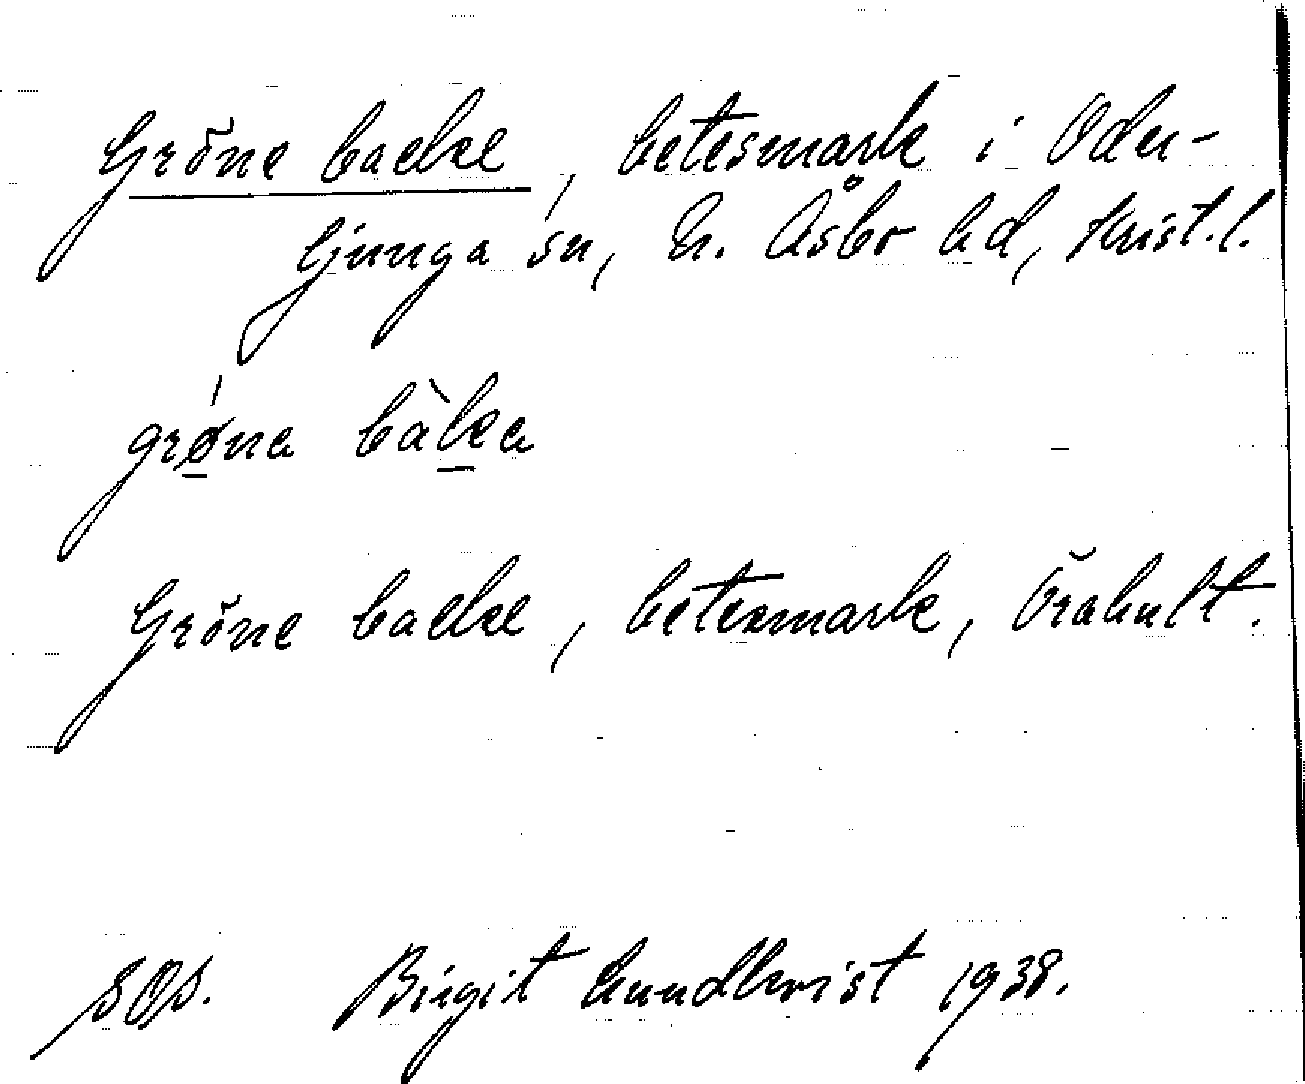 Gröne backe, betesmark i Oder-
ljunga sn, N. Åsbo hd, Krist. l.
grøna bàka
Gröne backe, betesmark, Örahult.
SOS. Birgit Lundkvist 1938.